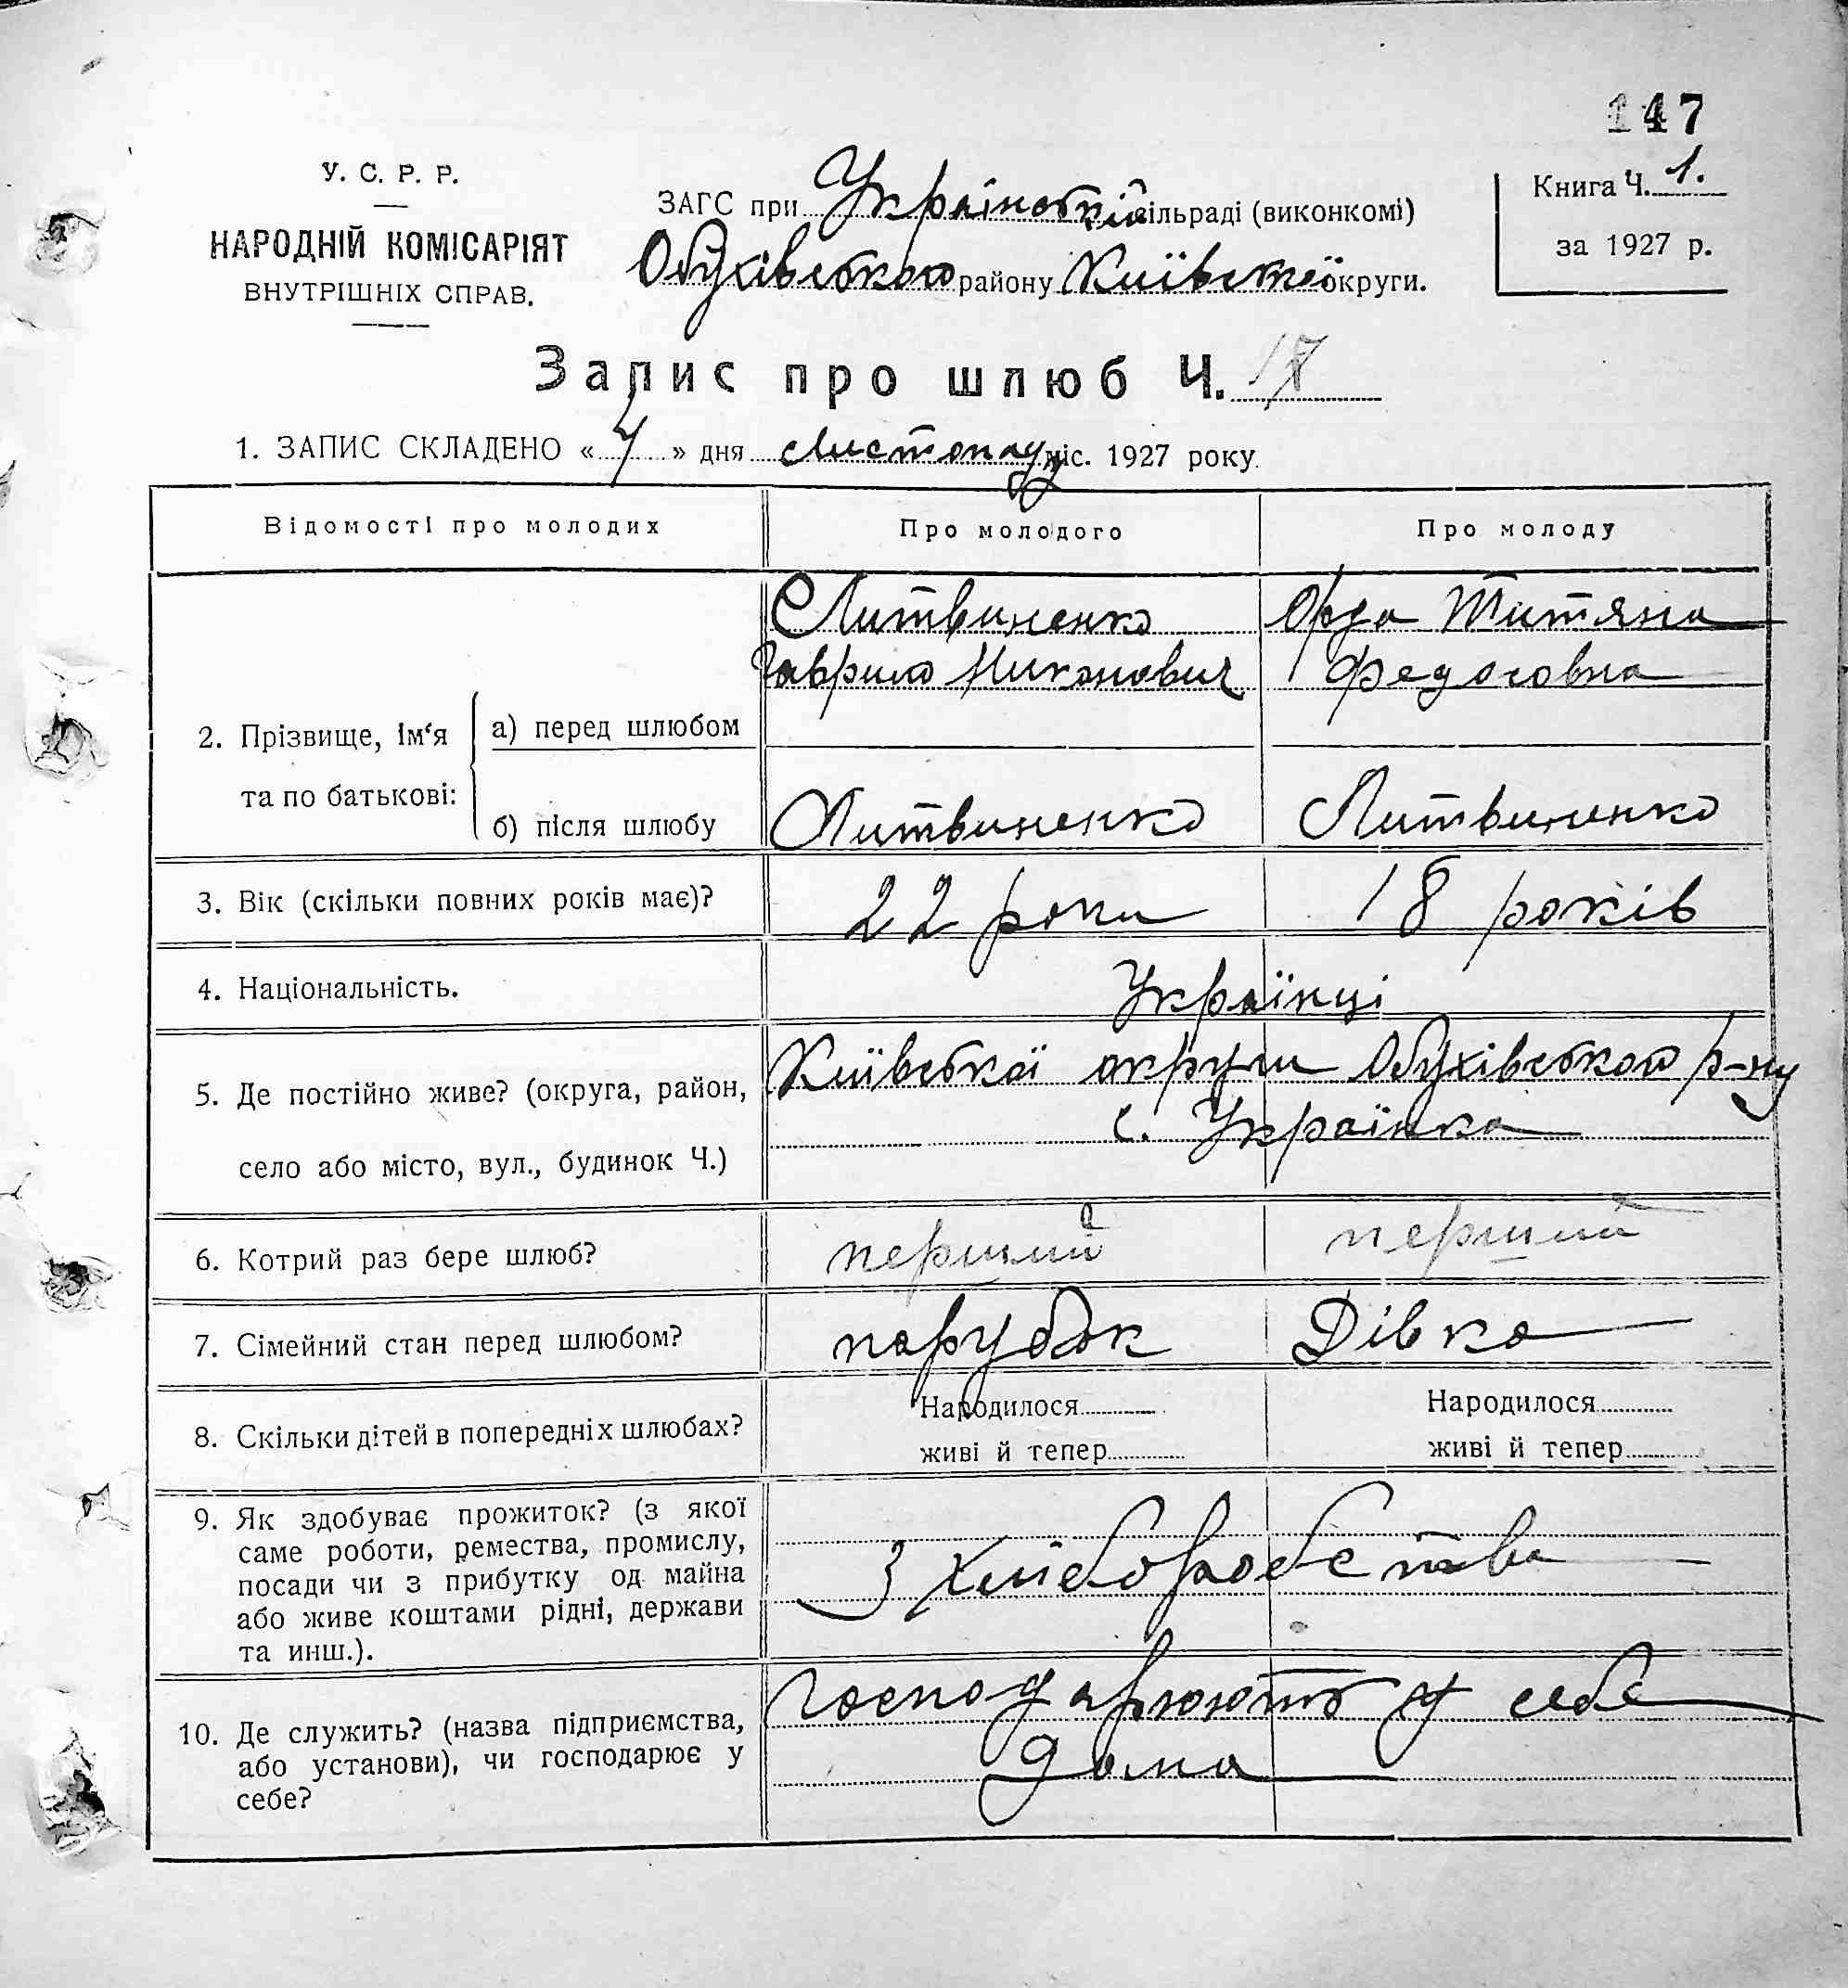 147
У. С. Р. Р.
НАРОДНІЙ КОМІСАРІЯТ
ВНУТРІШНІХ СПРАВ.
ЗАГС при Українській сільраді (виконкомі)
Обухівського району Київської округи.
Книга Ч. 1.
за 1927 р.
Запис про шлюб Ч. 17
1. ЗАПИС СКЛАДЕНО « » дня Листопаду міс. 1927 року.
Відомості про молодих Про молодого Про молоду
2. Прізвище, ім‘я та по батькові:
а) перед шлюбом
Литвиненко
Гаврило Миканович
Орда Титяна
Федоровна
б) після шлюбу Литвиненко Литвиненко
3. Вік (скільки повних років має)? 22 роки 18 років
4. Національність. Українці
5. Де постійно живе? (округа, район,
село або місто, вул., будинок Ч.)
Київської округи Обухівського р-ну
с. Українка
6. Котрий раз бере шлюб? перший перший
7. Сімейний стан перед шлюбом? парубок Дівка
8. Скільки дітей в попередніх шлюбах?
Народилося
живі й тепер
Народилося
живі й тепер
9. Як здобуває прожиток? (з якої
саме роботи, ремества, промислу,
посади чи з прибутку од майна
або живе коштами рідні, держави
та инш.).
З хліборобства
10. Де служить? (назва підприємства,
або установи), чи господарює у
себе?
Господарюють у себе
дома